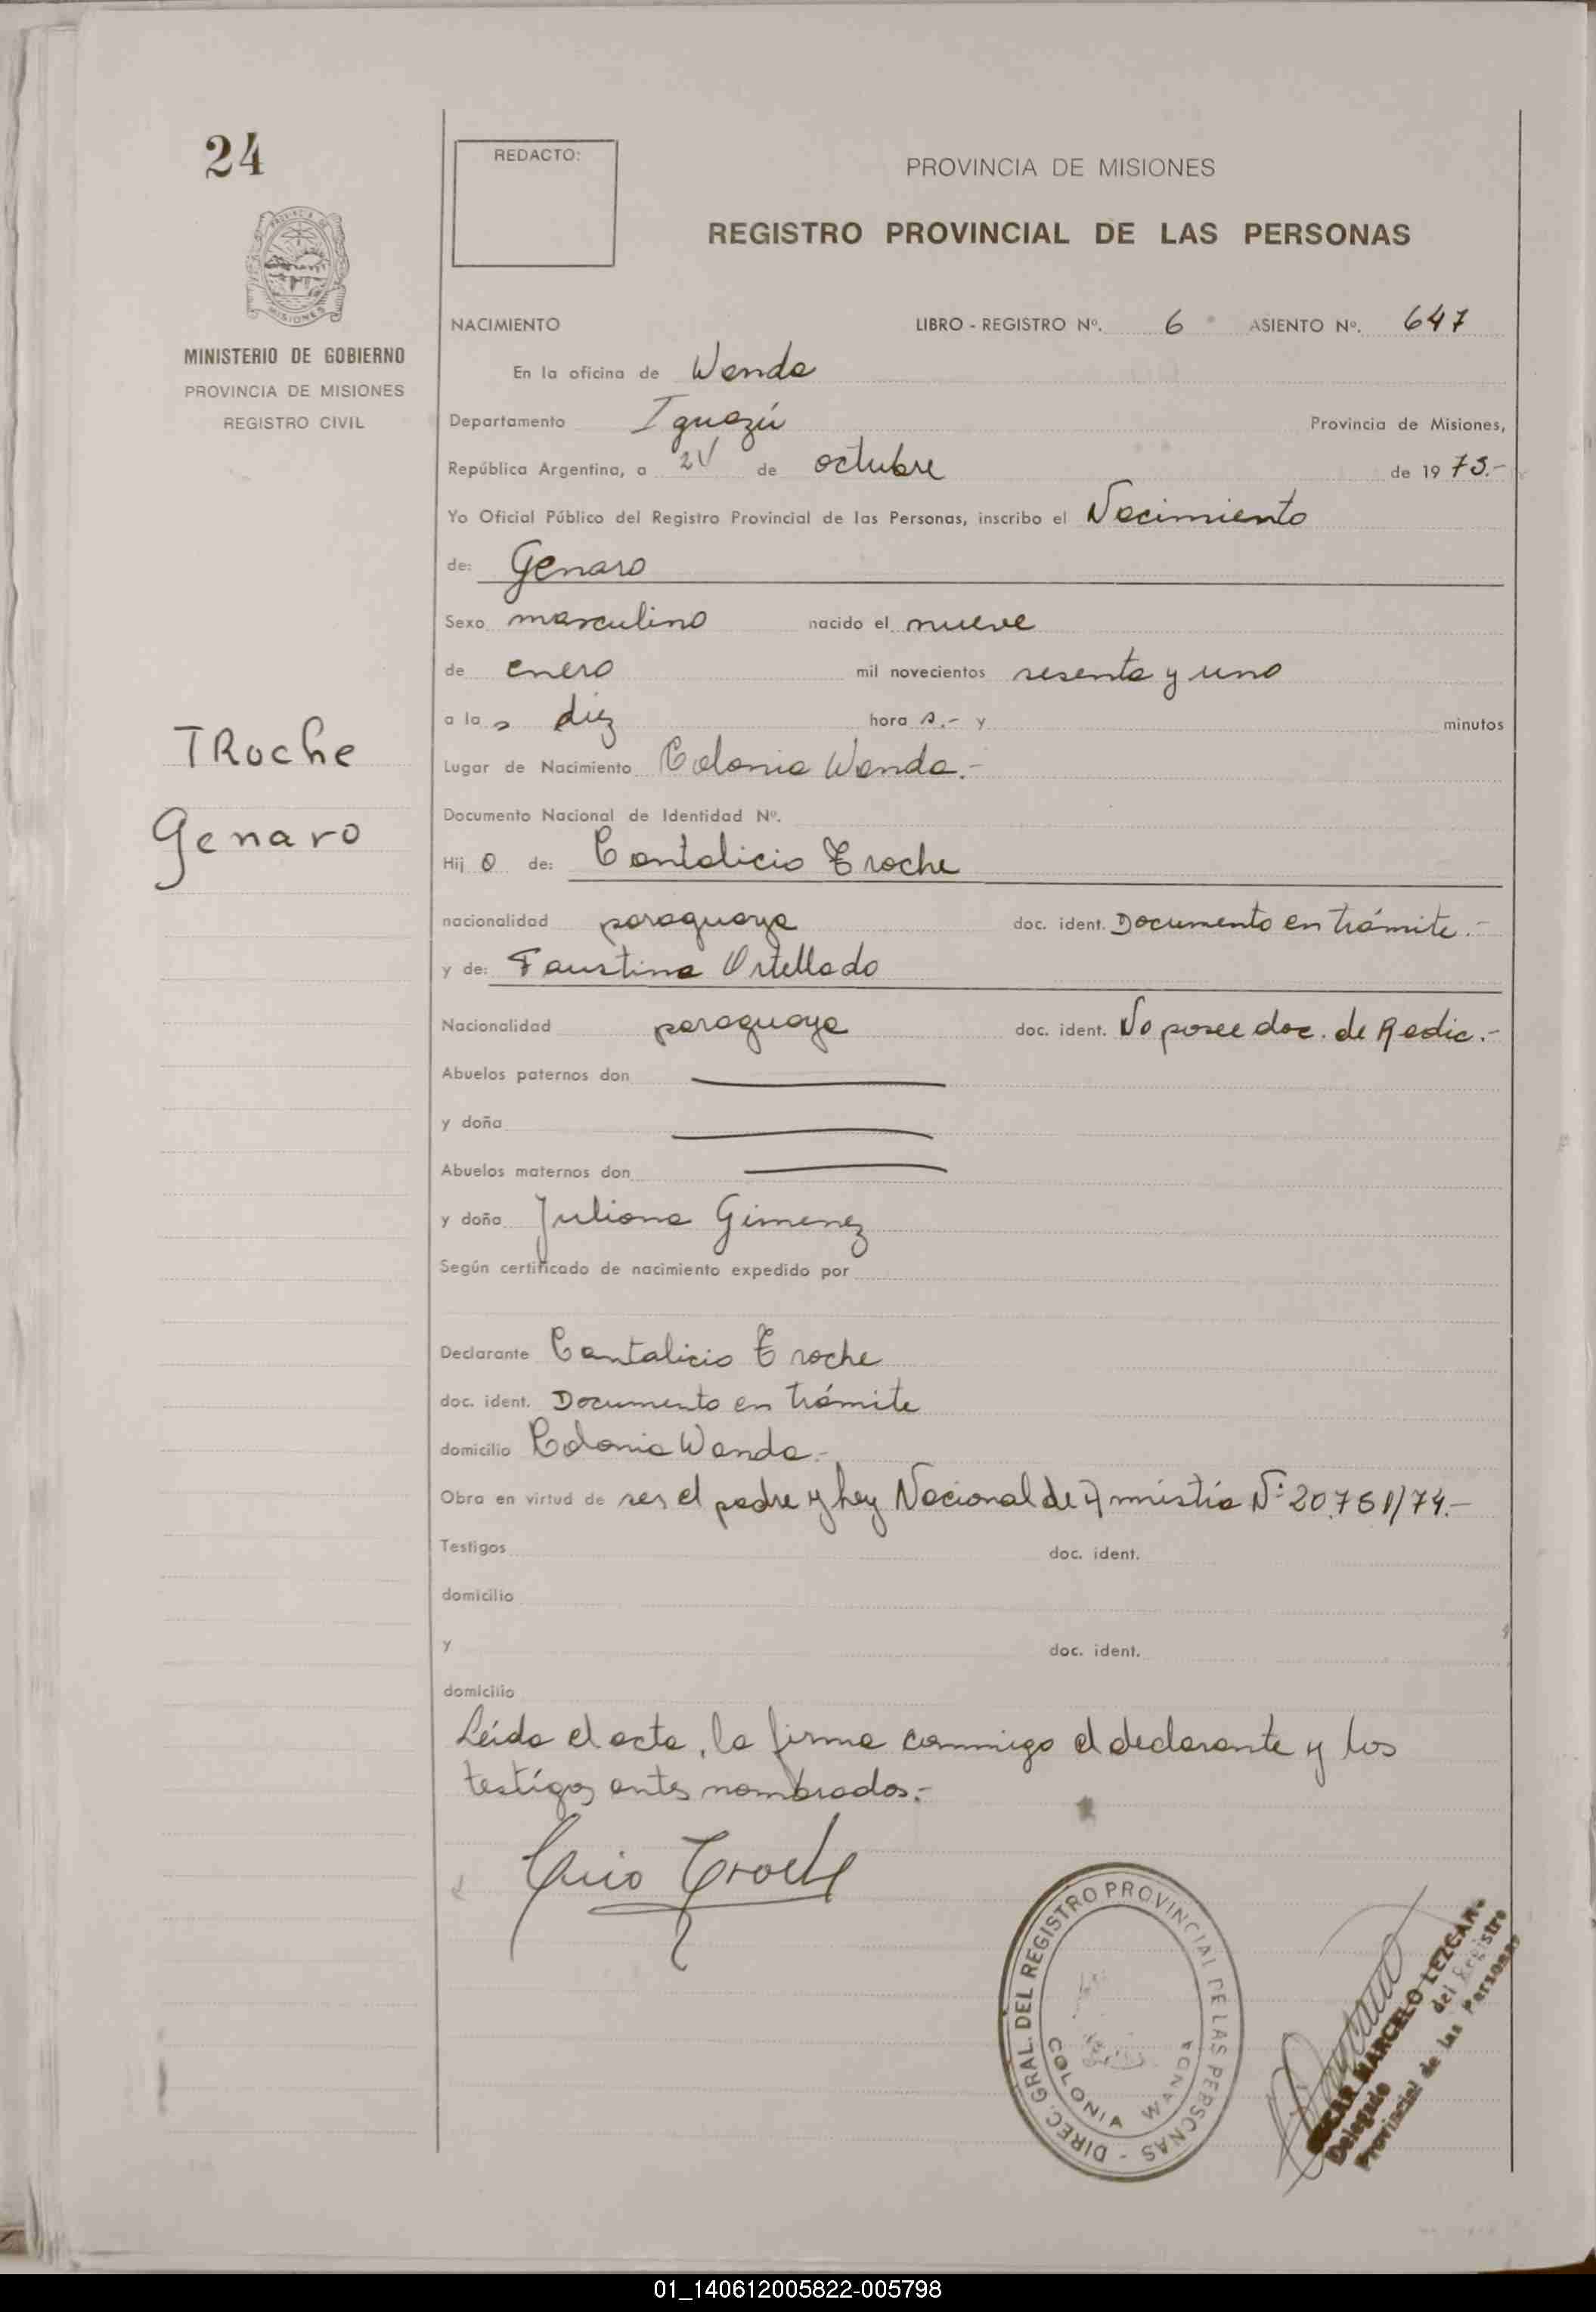 24
REDACTO:
PROVINCIA DE MISIONES
REGISTRO PROVINCIAL DE LAS PERSONAS
MISIONES
MINISTERIO DE GOBIERNO
PROVINCIA DE MISIONES
REGISTRO CIVIL
NACIMIENTO LIBRO - REGISTRO Nº. 6 ASIENTO Nº. 647
En la oficina de Wanda
Departamento Iguazú Provincia de Misiones,
República Argentina, a de octubre de 19 75.-
Yo Oficial Público del Registro Provincial de las Personas, inscribo el Nacimiento
de: Genaro
Sexo masculino nacido el nueve
de enero mil novecientos sesenta y uno
a la s diez hora s.- y minutos
TRoche
Genaro
Lugar de Nacimiento Colonia Wanda.-
Documento Nacional de Identidad Nº.
Hij o de: Cantalicio Troche
nacionalidad paraguaya doc. ident. Documento en trámite.-
y de: Faustina Ortellado
Nacionalidad paraguaya doc. ident. No posee doc. de Radic.-
Abuelos paternos don
y doña
Abuelos maternos don
y doña Juliana Gimenez
Según certificado de nacimiento expedido por
Declarante Cantalicio Troche
doc. ident. Documento en trámite
domicilio Colonia Wanda.-
Obra en virtud de ser el padre y ley Nacional de Amnistía Nº 20.751/74.-
Testigos doc. ident.
domicilio
y doc. ident.
domicilio
Leída el acta, la firma conmigo el declarante y los
testigos antes nombrados.-
Troche
DIREC. GRAL. DEL REGISTRO PROVINCIAL DE LAS PERSONAS -
COLONIA WANDA
OSCAR MARCELO LEZCANO
Delegado del Registro
Provincial de las Personas
01_140612005822-005798